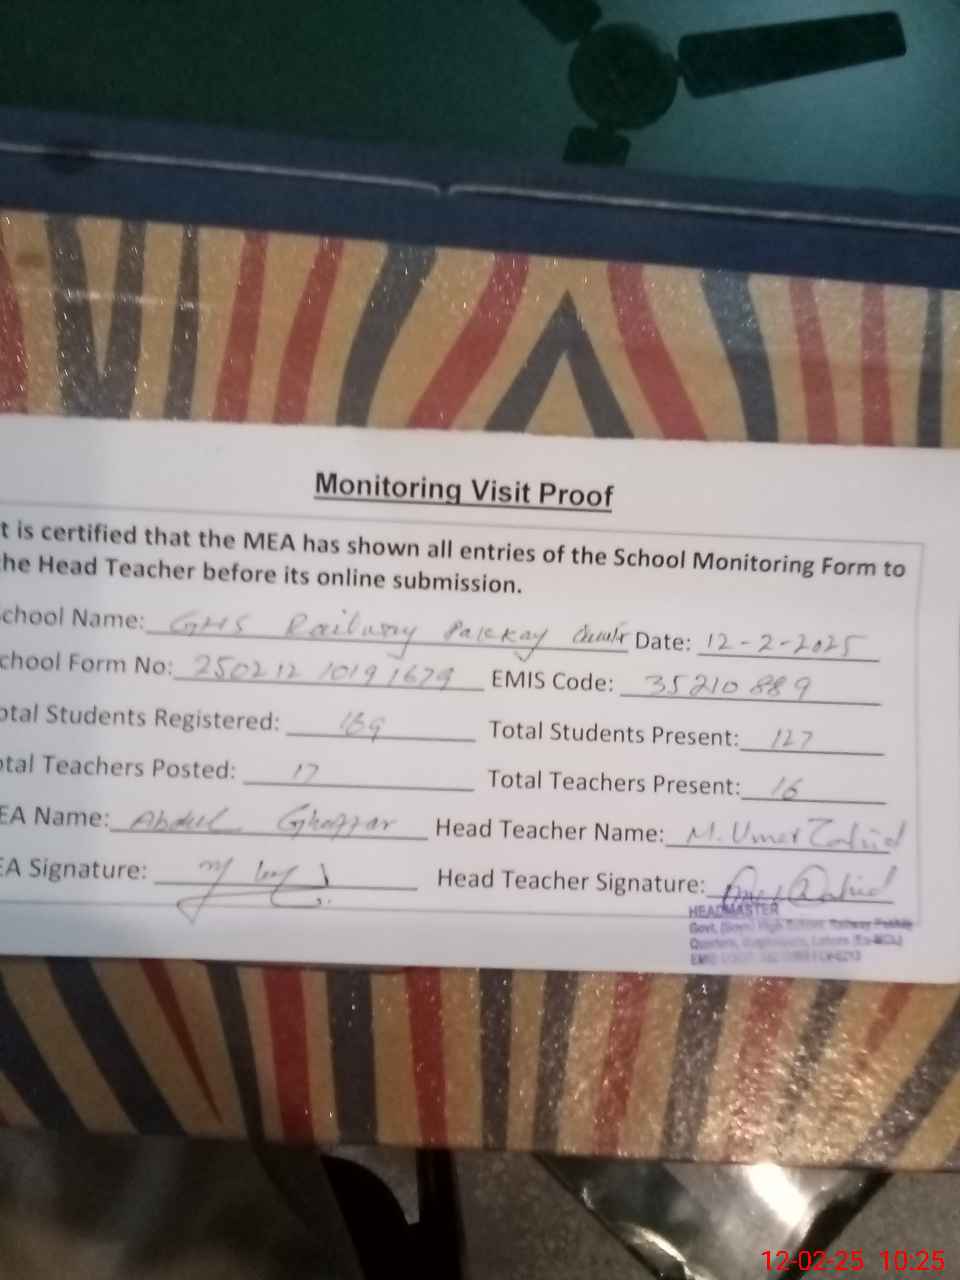 Monitoring Visit Proof
t is certified that the MEA has shown all entries of the School Monitoring Form to
he Head Teacher before its online submission.
chool Name: GHS Railway Pakkay Date: 12-2-2025
chool Form No: 250212 10191679 EMIS Code: 35210889
otal Students Registered: Total Students Present: 127
otal Teachers Posted: 17 Total Teachers Present: 16
EA Name: Abdul Ghaffar Head Teacher Name: M. Umer Zahid
EA Signature: Head Teacher Signature:
HEADMASTER
Govt. (Boys) High School Railway
Quarters, Lahore
12-02-25 10:25